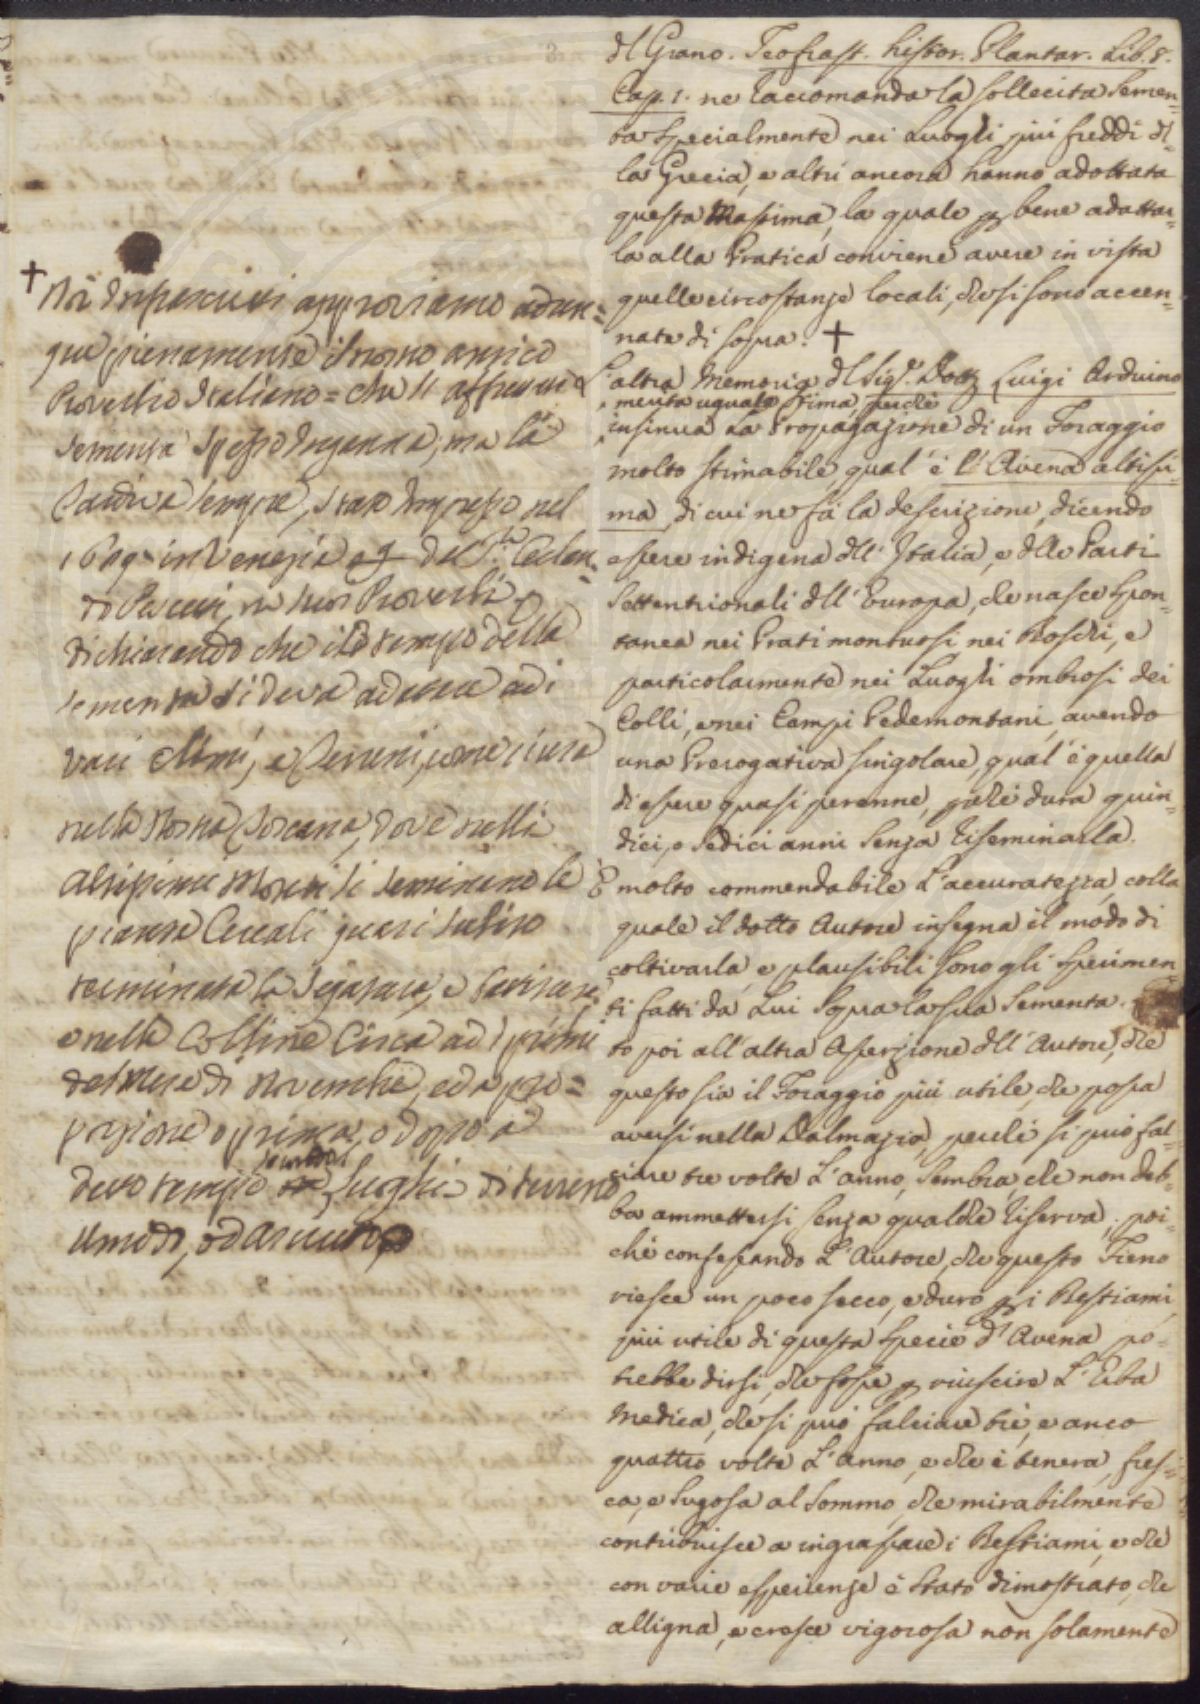 del Grano. Teofrast. histor. Plantar. Lib. 8.
Cap. 1. ne raccomanda la sollecita Semen=
ta specialmente nei Luoghi più freddi del=
la Grecia, e altri ancora hanno adottata
questa Massima, la quale p bene adattar=
la alla Pratica conviene avere in vista
quelle circostanze locali, che si sono accen=
nate di sopra. †
L'altra Memoria del Sig.r Dott. Luigi Arduino
merita uguale stima, perchè
insinua la Propagazione di un Foraggio
molto stimabile, qual' è l'Avena altissi=
ma, di cui ne fà la descrizione, dicendo
essere indigena dell' Italia, e delle Parti
Settentrionali dell' Europa, che nasce spon=
tanea nei Prati montuosi nei Boschi, e
particolarmente nei Luoghi ombrosi dei
Colli, e nei Campi Pedemontani, avendo
una Prerogativa singolare, qual' è quella
di essere quasi perenne, perchè dura quin=
dici, o sedici anni senza riseminarla.
È molto commendabile l'accuratezza, colla
quale il dotto Autore insegna il modo di
coltivarla, e plausibili sono gli sperimen=
ti fatti da Lui sopra la sua Sementa.
to poi all' altra Asserzione dell' Autore, che
questo sia il Foraggio più utile, che possa
aversi nella Dalmazia, perchè si può fal=
ciare tre volte l'anno, sembra, che non deb=
ba ammettersi senza qualche riserva, poi=
chè confessando l'Autore, che questo Fieno
riesce un poco secco, e duro p i Bestiami,
più utile di questa specie d'Avena po=
trebbe dirsi, che fosse p riuscire l'Erba
Medica, che si può falciare trè, e anco
quattro volte l'anno, e che è tenera, fres=
ca, e sugosa al sommo, che mirabilmente
contribuisce a ingrassare i Bestiami, e che
con varie esperienze è stato dimostrato, che
alligna, e cresce vigorosa non solamente
† Noi approviamo adun=
que pienamente il nostro antico
Proverbio Italiano = che l' affrettata
sementa spesso inganna, ma la
tardiva sempre, stato impresso nel
in Venezia
ne suoi Proverbi,
dichiarando che il tempo della
sementa si deva adattare ad i
varj Climi, e Terreni, come si usa
nella nostra Toscana, dove nelli
altissimi Monti si seminano le
piante Cereali quasi subito
terminata la segatura, e
e nelle Colline circa ad i primi
del Mese di Novembre, ed a pro=
porzione o prima, o dopo a
detto tempo secondo i luoghi di terreno
umido, od asciutto